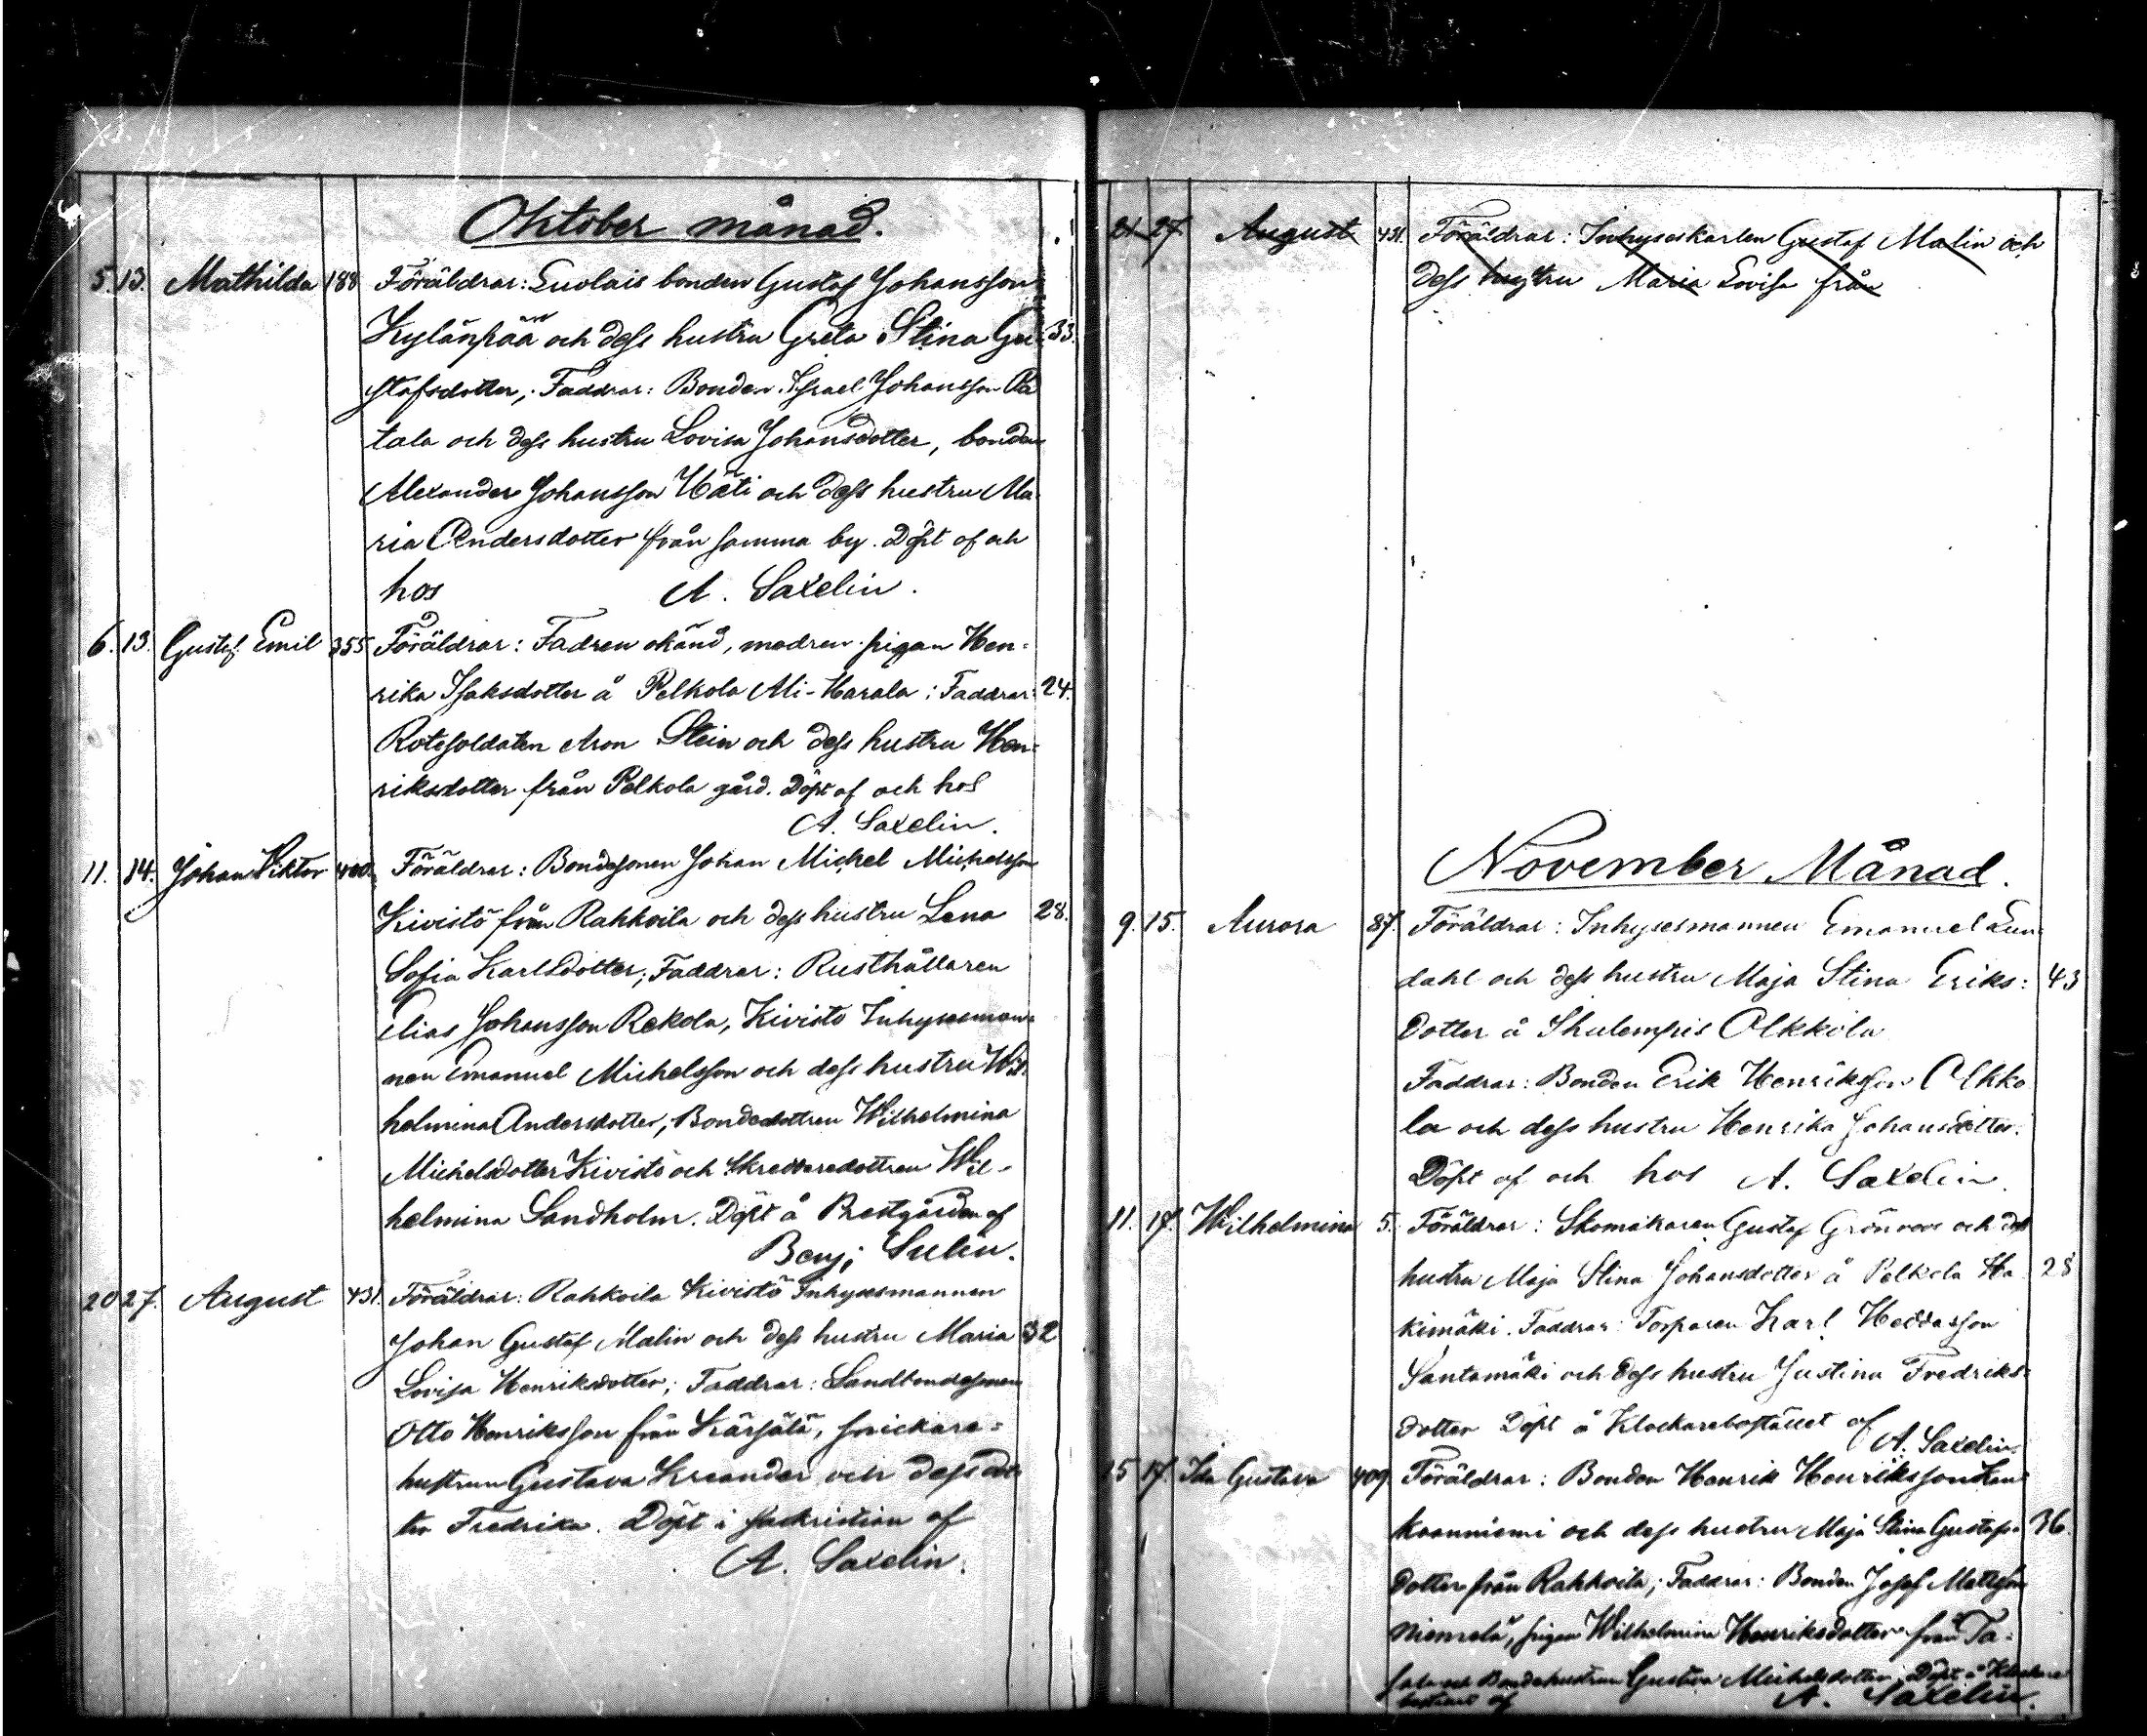 Oktober månad.
5. 13. Mathilda 188 Föräldrar: Luolais bonden Gustaf Johansson
Kylänpää och dess hustru Greta Stina Gu- 33.
stafsdotter; Faddrar: Bonden Israel Johansson
tala och dess hustru Lovisa Johansdotter, bonden
Alexander Johansson Häti och dess hustru Ma
ria Andersdotter från samma by. Döpt af och
hos A. Saxelin.
6. 13. Gustaf Emil 355 Föräldrar: Fadren okänd, modren pigan Hen-
rika Isaksdotter å Pelkola Ali-Harala; Faddrar: 24.
Rotesoldaten Aron Stein och dess hustru Hen-
riksdotter från Pelkola gård. Döpt af och hos
A. Saxelin.
11. 14. Johan Viktor 400. Föräldrar: Bondesonen Johan Michel Michelsson
Kivistö från Rahkoila och dess hustru Lena 28.
Sofia Karlsdotter; Faddrar: Rusthållaren
Elias Johansson Rekola, Kivistö Inhysesman-
nen Emanuel Michelsson och dess hustru Wil-
helmina Andersdotter, Bondedottren Wilhelmina
Michelsdotter Kivistö och Skreddaredottren Wil-
helmina Sandholm. Döpt å Prestgården af
Benj; Sulin.
20 27. August 431. Föräldrar: Rahkoila Kivistö Inhysesmannen
Johan Gustaf Malin och dess hustru Maria 32
Lovisa Henriksdotter; Faddrar: Landbondesonen
Otto Henriksson från Kärsälä, snickare-
hustrun Gustava Kreander och dess dot
ter Fredrika. Döpt i sackristian af
A. Saxelin.
21 27. August 431. Föräldrar: Inhyseskarlen Gustaf Malin och
dess hustru Maria Lovisa från
November Månad.
9. 15. Aurora 87. Föräldrar: Inhysesmannen Emanuel Lun
dahl och dess hustru Maja Stina Eriks- 43
dotter å Skulempis Olkkola
Faddrar: Bonden Erik Henriksson Olkko
la och dess hustru Henrika Johansdotter.
Döpt af och hos A. Saxelin.
11. 17. Wilhelmina 5. Föräldrar: Skomakaren Gustaf Grönroos och dess
hustru Maja Stina Johansdotter å Pelkola Ha 28
kimäki. Faddrar: Torparen Karl Heddasson
Santamäki och dess hustru Justina Fredriks-
dotter Döpt å Klockarebostället af
A. Saxelin.
15 17. Ida Gustava 409. Föräldrar: Bonden Henrik Henriksson Lan
koanniemi och dess hustru Maja Stina Gustafs- 36.
dotter från Rahkoila; Faddrar: Bonden Josef Mattsson
Niemelä, pigan Wilhelmina Henriksdotter från Ta-
sala och Bondehustrun Gustava Michelsdotter; Döpt å Klockare
bostället af A. Saxelin.